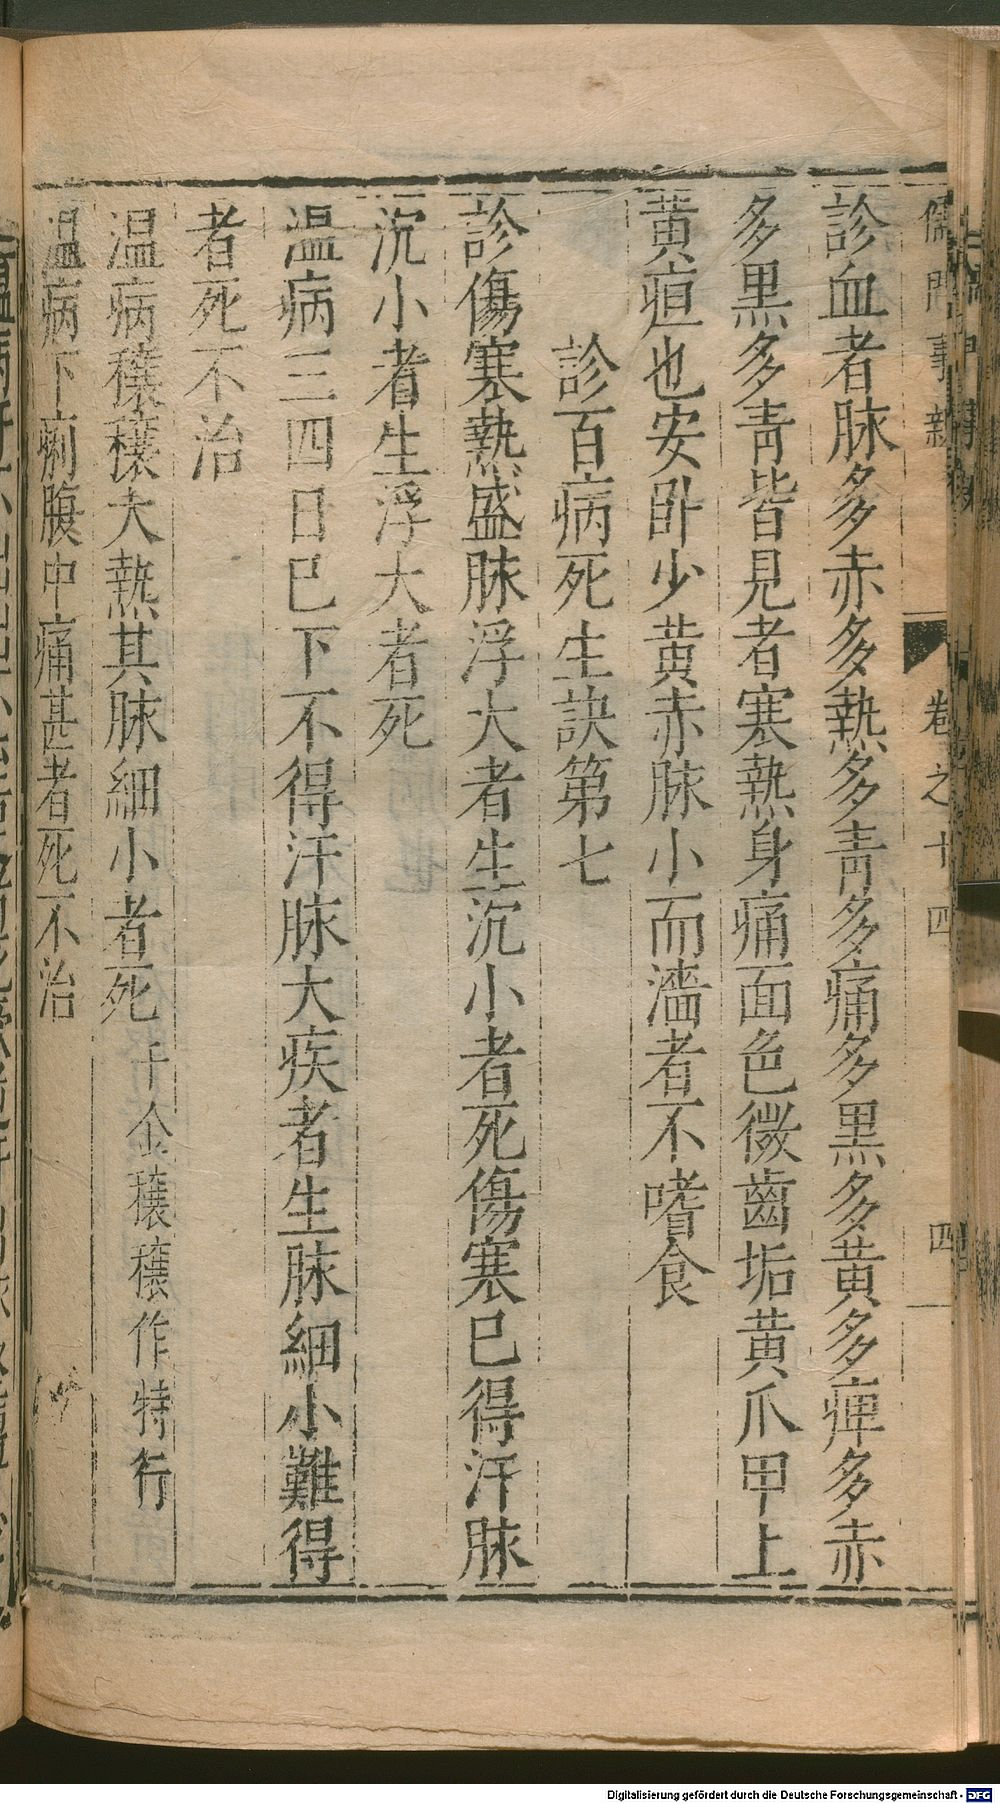 儒門事親 卷之十四 四
診血者脉多赤多熱多青多痛多黑多黃多痺多赤
多黑多青皆見者寒熱身痛面色微齒垢黃爪甲上
黃疸也安卧少黃赤脉小而濇者不嗜食
診百病死生訣第七
診傷寒熱盛脉浮大者生沉小者死傷寒已得汗脉
沉小者生浮大者死
溫病三四日已下不得汗脉大疾者生脉細小難得
者死不治
溫病穰穰大熱其脉細小者死千金穰穰作特行
溫病下痢腹中痛甚者死不治
Digitalisierung gefördert durch die Deutsche Forschungsgemeinschaft - DFG